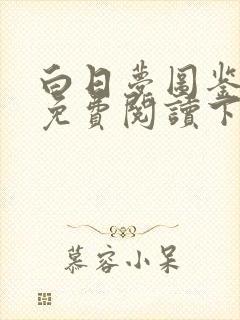 白日夢圖鉴
免費閱讀下
慕容小呆